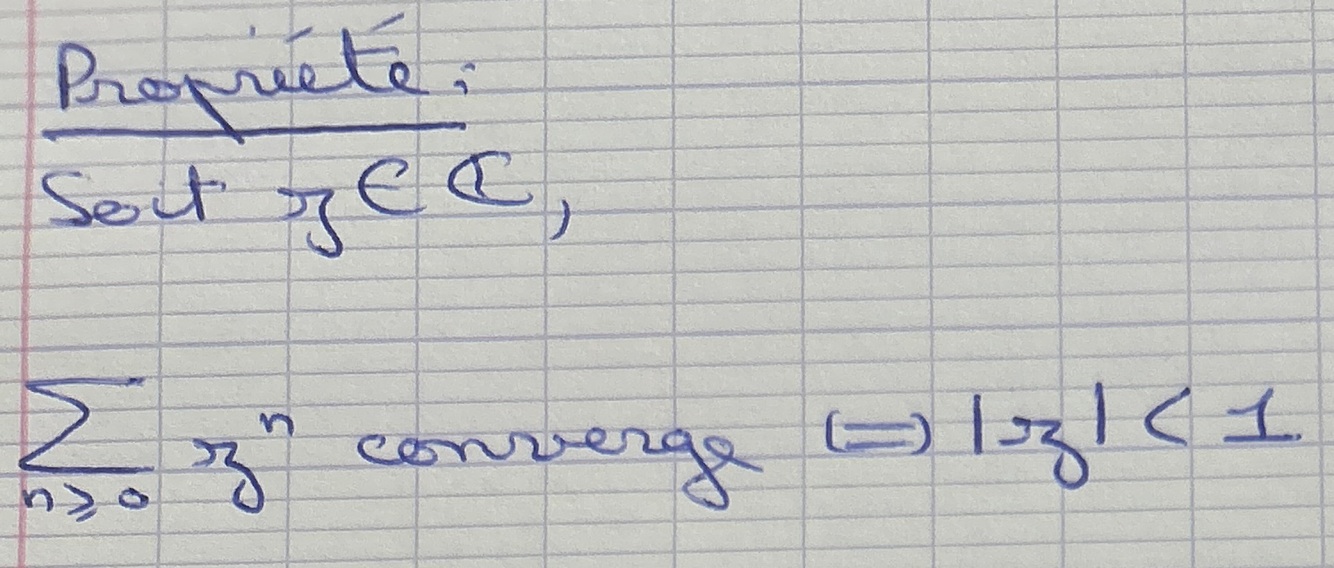 Propriété :
Soit z ∈ ℂ,
∑ n≥0 zⁿ converge (=) |z| < 1.